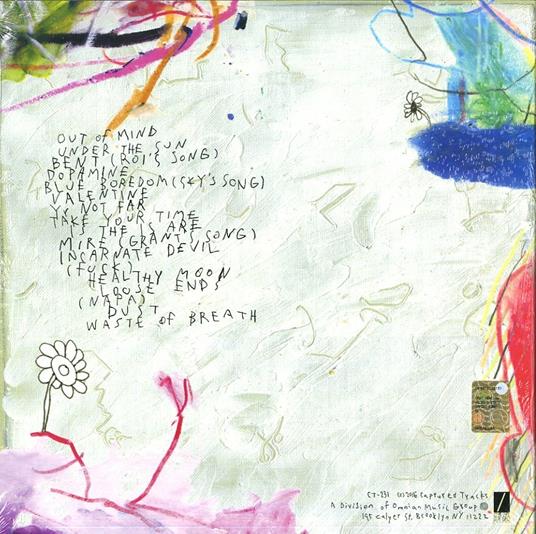 OUT of MIND
UNDER THE SUN
BENT (ROI'S SONG)
DOPAMINE
BLUE BOREDOM (SKY'S SONG)
VALENTINE
YR NOT FAR
TAKE YOUR TIME
IS THE IS ARE
MIRE (GRANT'S SONG)
INCARNATE DEVIL
(FUCK)
HEALTHY MOON
LOOSE ENDS
(NAPA)
DUST
WASTE of BREATH
CT-231 (c) 2016 Captured Tracks
A Division of Omnian Music Group
195 Calyer St. Brooklyn NY 11222